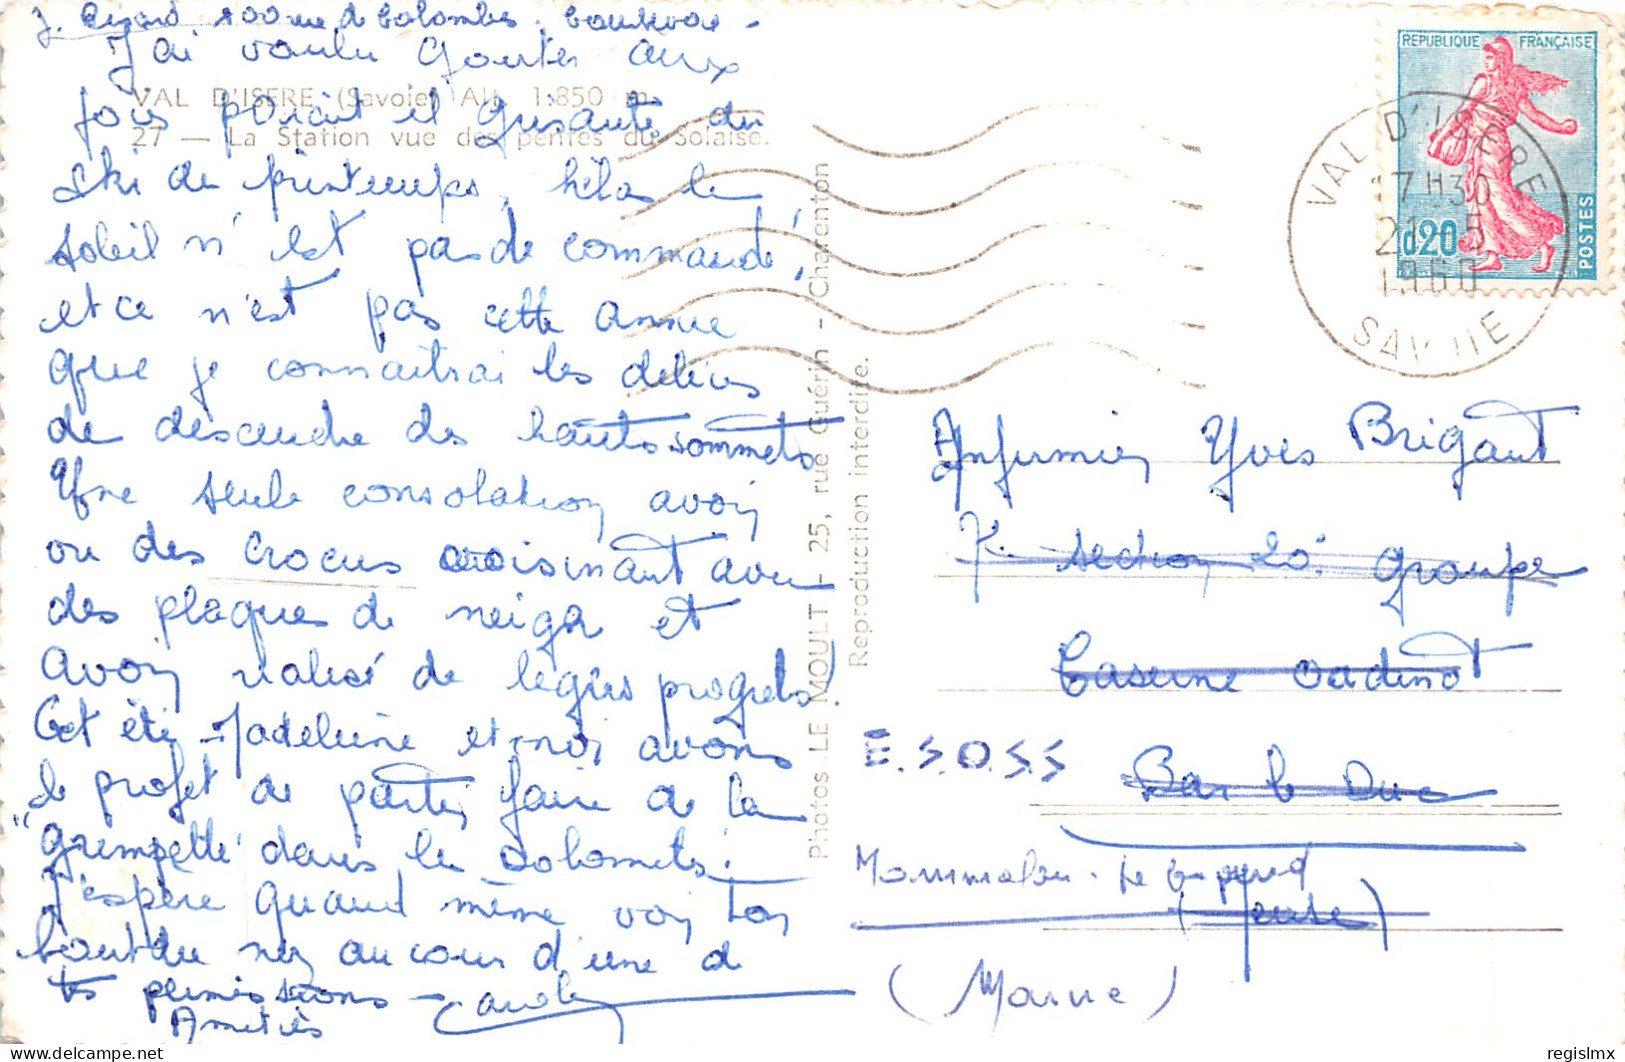 100 rue de Colombes, Courbevoie -
J'ai voulu gouter aux
VAL D'ISERE (Savoie) Alt. 1.850 m.
27 — La Station vue des pentes du Solaise.
joies
et grisante du
ski de printemps, hélas le
soleil n'est pas de commande!
et ce n'est pas cette année
que je connaitrai les délices
de descendre des hauts sommets
Une seule consolation avoir
vu des crocus voisinant avec
des plaques de neige et
avoir réalisé de légers progrès!
Cet été Madeleine et moi avons
le projet de partir faire de la
"grimpette" dans les Dolomites.
J'espère quand même voir ton
bout du nez au cours d'une de
tes permissions -
Amitiés
Photos LE MOULT - 25, rue Guérin - Charenton
Reproduction interdite.
REPUBLIQUE FRANÇAISE
0,20
POSTES
VAL D'ISERE
17H30
21-5
1960
SAVOIE
Infirmier Yves Brigant
7e section 20e Groupe
Caserne Oudinot
E.S.O.S.S
Bar le Duc
Mourmelon - le Grand
(Meuse)
(Marne)
delcampe.net
regislmx